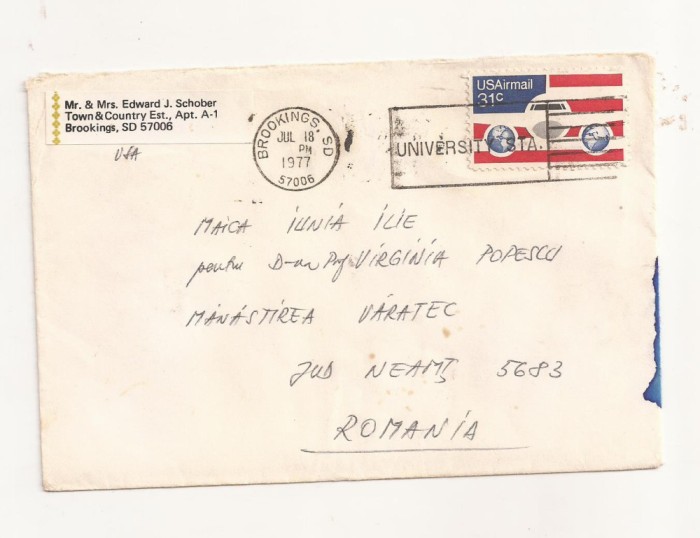 Mr. & Mrs. Edward J. Schober
Town & Country Est., Apt. A-1
Brookings, SD 57006
USA
BROOKINGS, SD
JUL 18
PM
1977
57006
UNIVERSITY STA.
USAirmail
31c
MAICA IUNIA ILIE
pentru D-na Prof VIRGINIA POPESCU
MĂNĂSTIREA VĂRATEC
JUD NEAMȚ 5683
ROMANIA